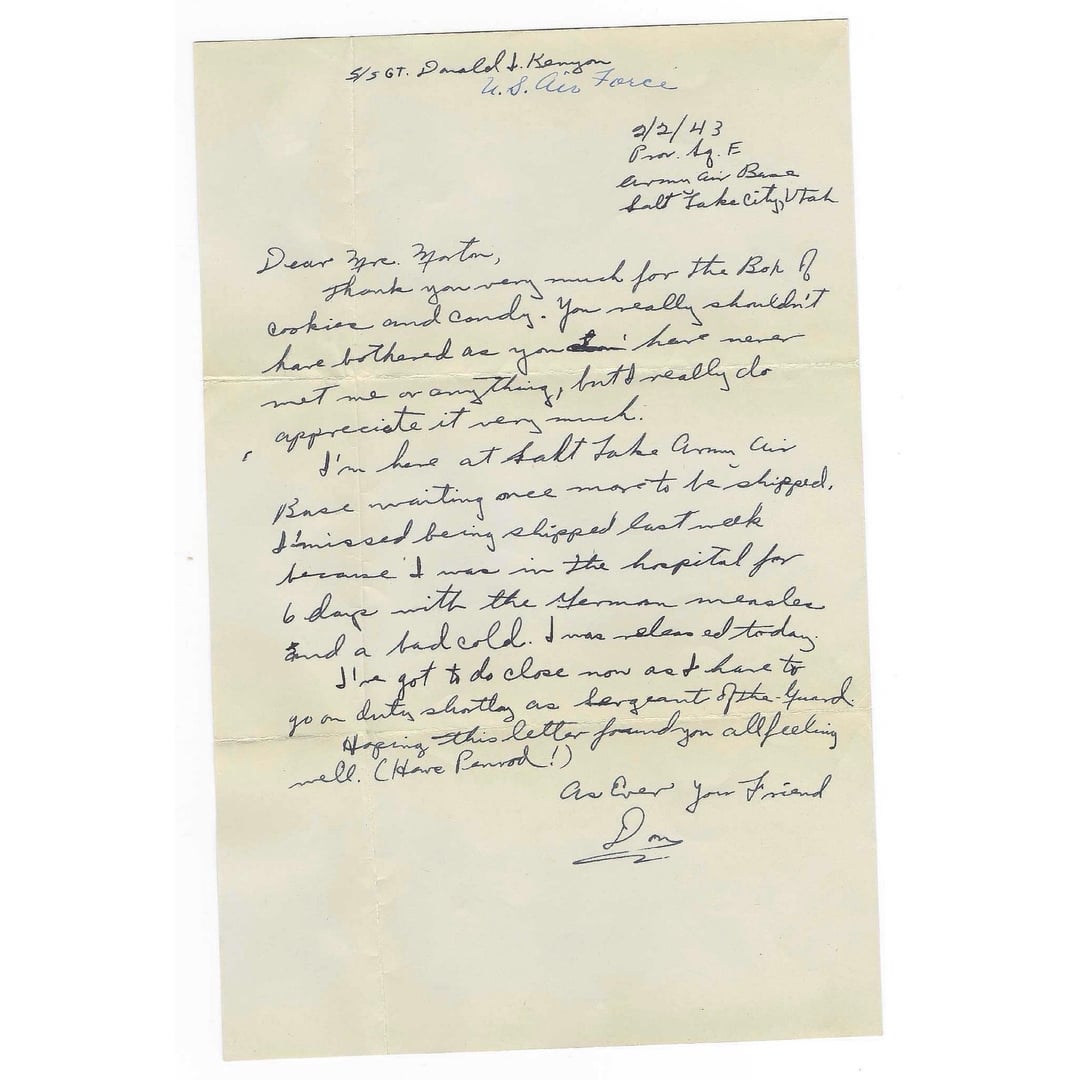 S/SGT. Donald I. Kenyon
U.S. Air Force
2/2/43
Prov. Sq. F
Army Air Base
Salt Lake City, Utah
Dear Mrs. Morton,
Thank you very much for the Box of
cookies and candy. You really shouldn't
have bothered as you have never
met me or anything, but I really do
appreciate it very much.
I'm here at Salt Lake Army Air
Base waiting once more to be shipped.
I missed being shipped last week
because I was in the hospital for
6 days with the German measles
and a bad cold. I was released today.
I've got to do close now as I have to
go on duty shortly as Sergeant of the Guard.
Hoping this letter found you all feeling
well. (Have Penrod!)
As Ever Your Friend
Don